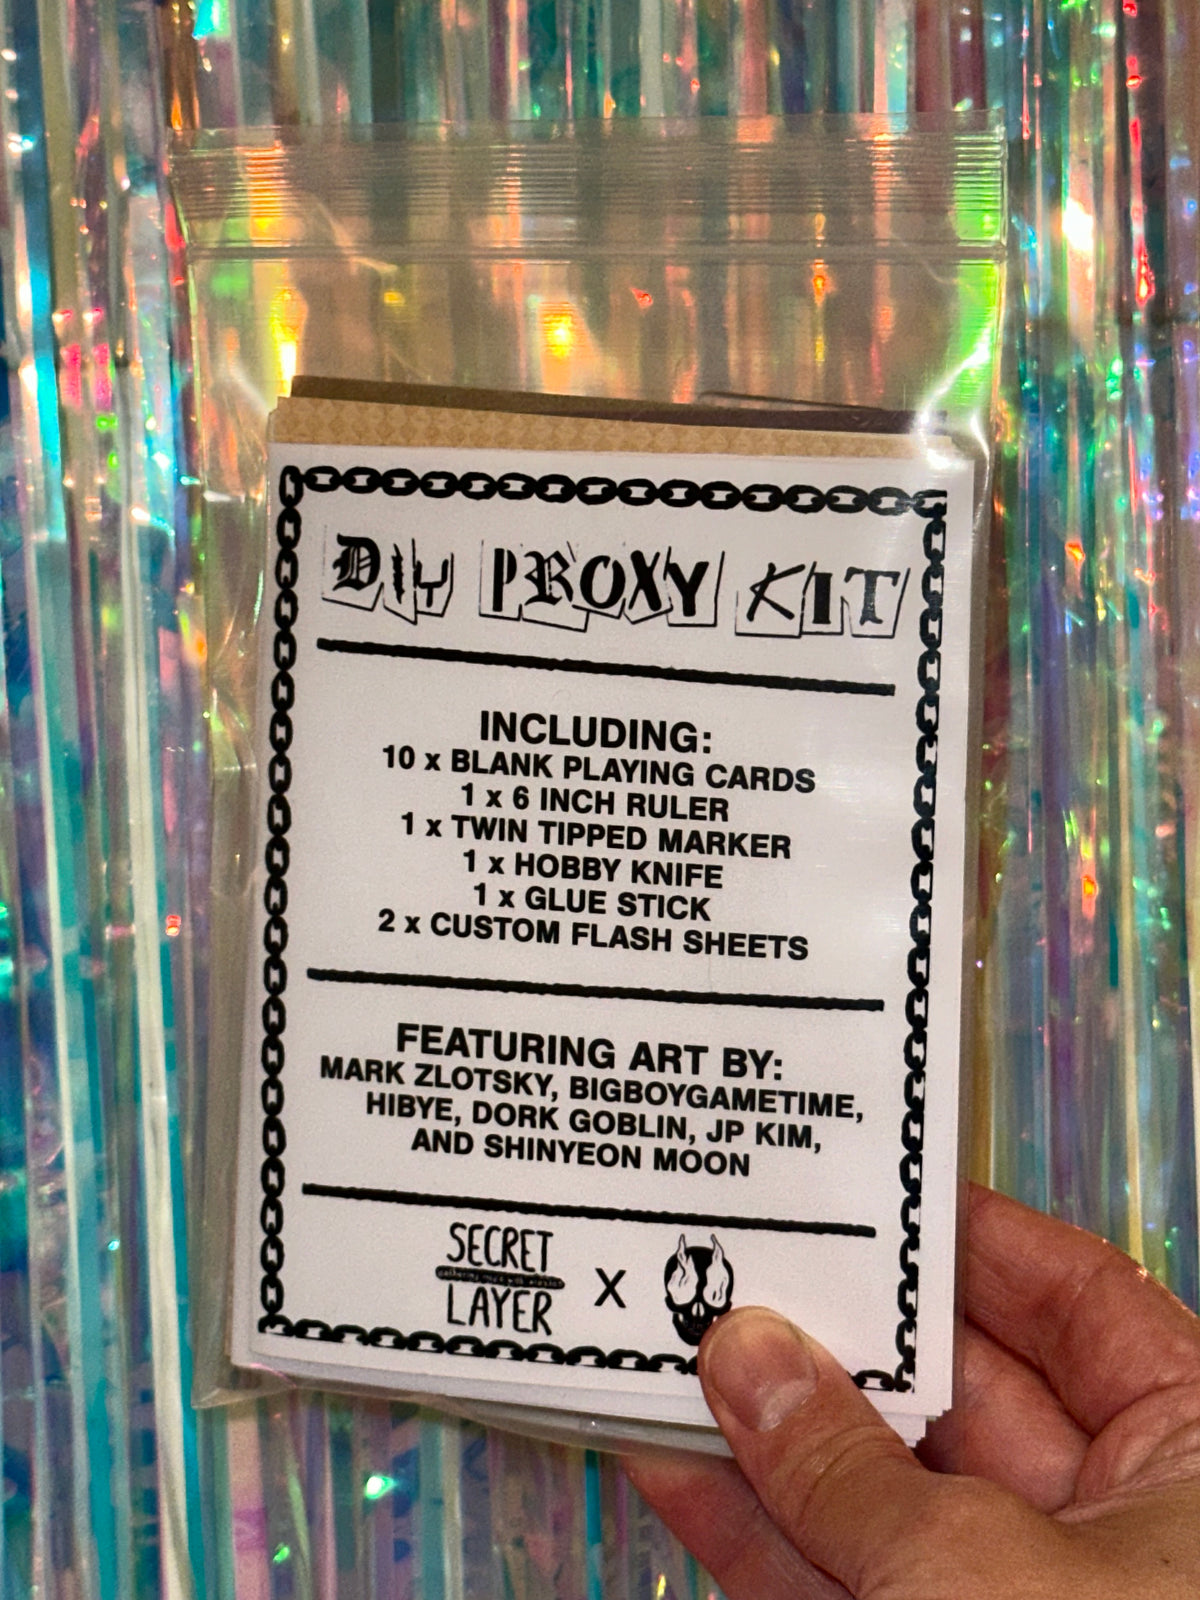 DIY PROXY KIT
INCLUDING:
10 x BLANK PLAYING CARDS
1 x 6 INCH RULER
1 x TWIN TIPPED MARKER
1 x HOBBY KNIFE
1 x GLUE STICK
2 x CUSTOM FLASH SHEETS
FEATURING ART BY:
MARK ZLOTSKY, BIGBOYGAMETIME,
HIBYE, DORK GOBLIN, JP KIM,
AND SHINYEON MOON
SECRET
LAYER
X